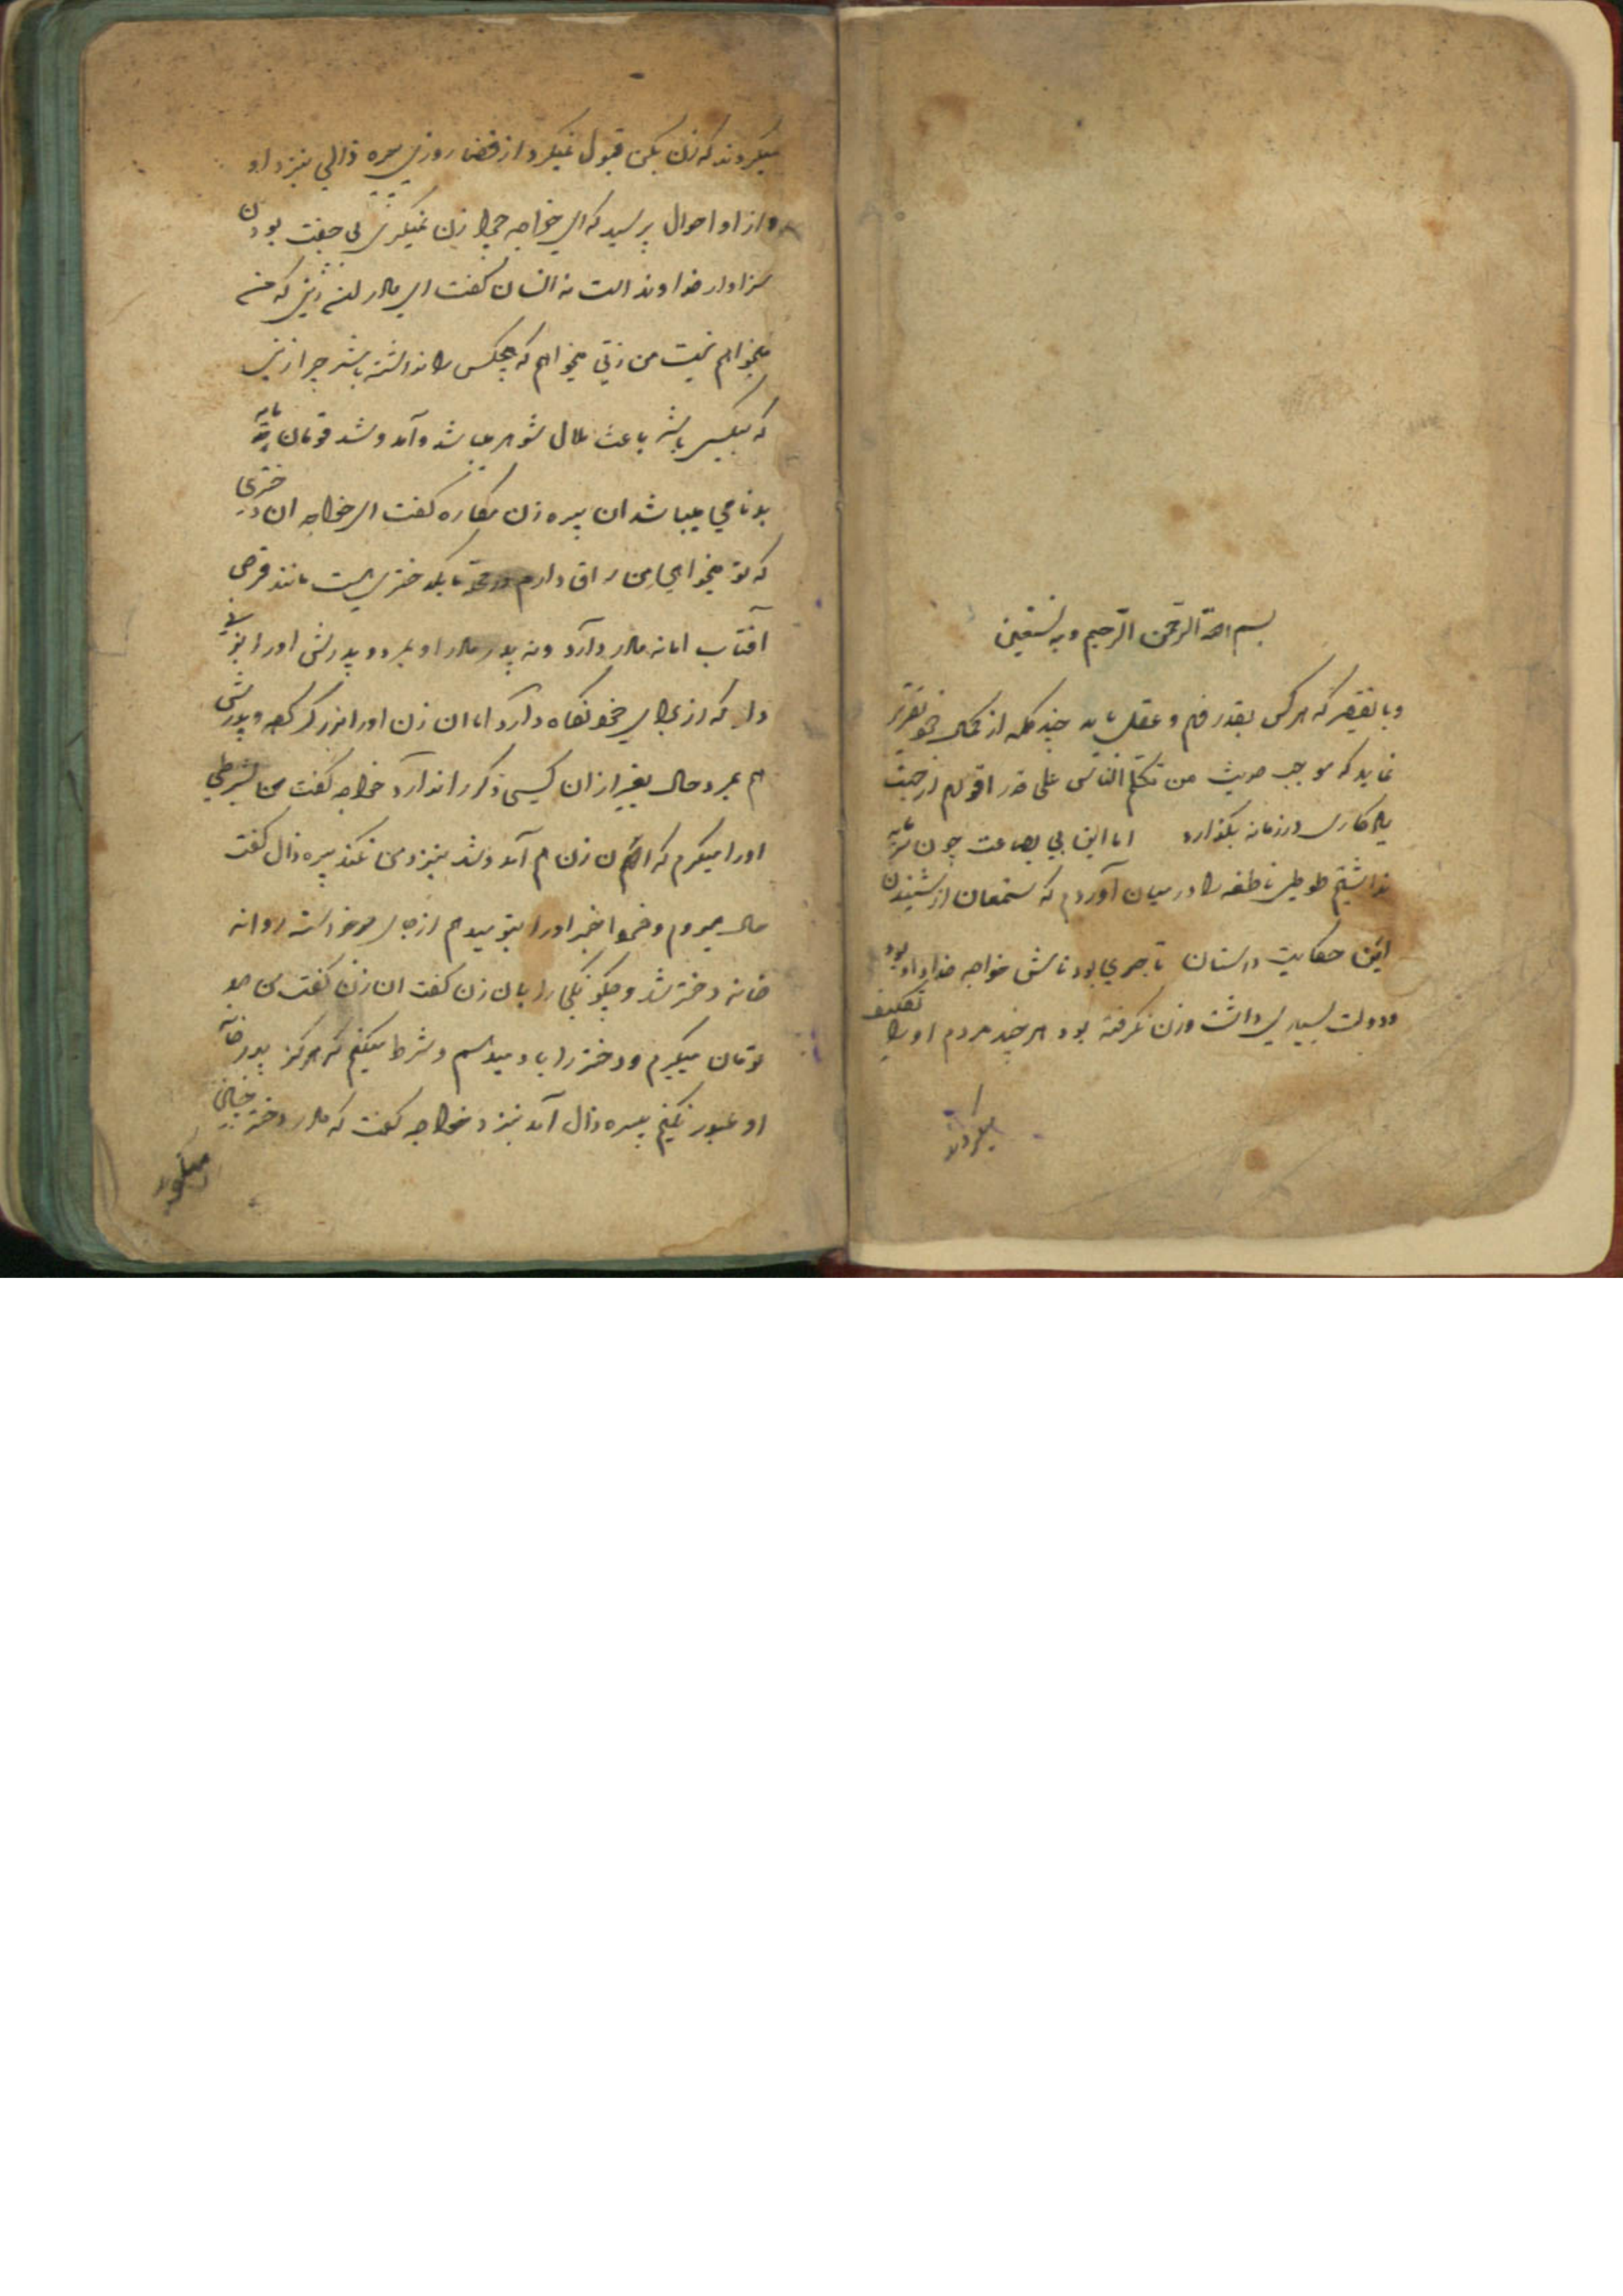 بسم الله الرحمن الرحیم وبه نستعین
که هرکس بقدر فهم و عقل باید چند کلمه از
نماید که موجب حدیث من تکلم الناس علی قدر
یادکاری در زمانه بکذارد اما این بی بضاعت چون
نداشتم طوطی ناطقه را در میان آوردم که مستمعان از شنیدن
این حکایت داستان تاجری بود نامش خواجه خداداد بود
ودولت بسیاری داشت وزن نکرفته بود هر چند مردم او را تکلیف
میکردند
میکردند که زن بکن قبول نمیکرد از قضا روزی پیره ذالی بنزد او
واز او احوال پرسید که ای خواجه چرا زن نمیکری بی جفت بودن
سزاوار خداوند است نه انسان کفت ای مادر زنی که من
میخواهم نیست من زنی میخواهم که هیچکس را نداشته باشد چرا زنی
که بیکس باشد باعث ملال شوهر میباشد وآمد وشد قومان
بدنامی میباشد ان پیره زن مکاره کفت ای خواجه ان دختری
که تو میخواهی من سراق دارم یکدختری است مانند قرص
آفتاب اما نه مادر دارد ونه پدر مادر او بمرد و پدرش اورا
که از برای خود نکاه دارد اما ان زن اورا بزرک کرد و پدرش
هم بمرد حال بغیر از ان کسی دکر را ندارد خواجه کفت من بشرطی
اورا میکرم که ان زن هم آمد وشد بنزد من نکند پیره ذال کفت
حال میروم و خبر اورا بتو میدهم از جای برخواسته روانه
خانه دختر شد و چکونکی را بان زن کفت ان زن کفت من صد
تومان میکیرم ودختر را باو میدهم وشرط میکنم که هرکز بدر خانه
او عبور نکنم پیره ذال آمد بنزد خواجه کفت که مادر دختر چنان
میکوید